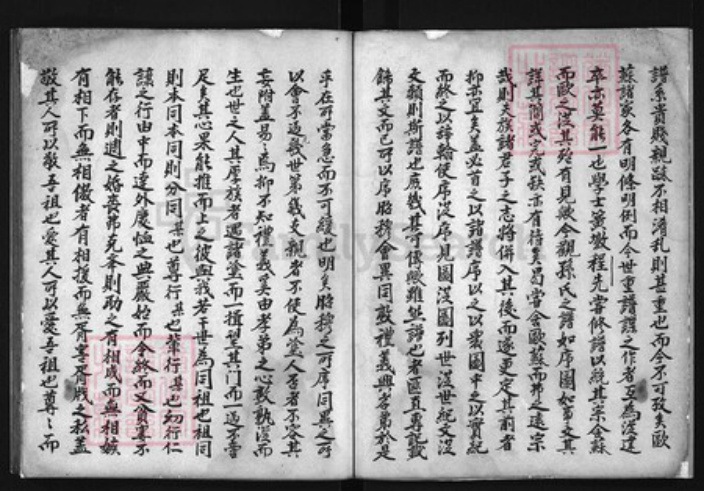 譜系貴賤親疎不相淆乱則甚重也而今不可攷矣歐
蘇諸家各有明條明例而今世重譜諜之作者互為從違
卒亦莫能一也學士篁墩程先嘗修譜以統其宗舍蘇
而歐之從其殆有見歟今觀孫氏之譜如序圖如事文其
詳其簡或完或缺亦有待矣曷嘗舍歐蘇而弗之遠宗
哉則夫族諸君子之志將併入其後而遂更定其前者
抑亦宜矣盖必首之以諸譜序以之以裁圖中之以實紀
而終之以祠翰使序從序見圖從圖列世從世紀文從
文類則斯譜也庶幾其可優照雖然譜也者匪直專記載
飾其文而已可以序昭穆會異同敦禮義興容第於是
乎在可當急而不可緩也明矣昭穆之可序同異之可
以會不過幾世第幾支親者不使為塗人否者不容其
妄附盖易易為抑不知禮義莫由孝弟之心敦孰從而
生也世之人其厚族者遇諸塗而一揖望其門而一過不啻
足矣其心果能推而上之彼與我若干世為同祖也祖同
則本同本同則分同某也尊行某也輩行某也幼行仁
讓之行由中而達外慶恤之典嚴始而令終而又貧寡不
能存者則週之婚喪弗克奉則助之有相成而無相嫉
有相下而無相傲者有相援而無胥戕之私盖
敬其人可以敬吾祖也愛其人可以愛吾祖也尊尊而
FamilySearch